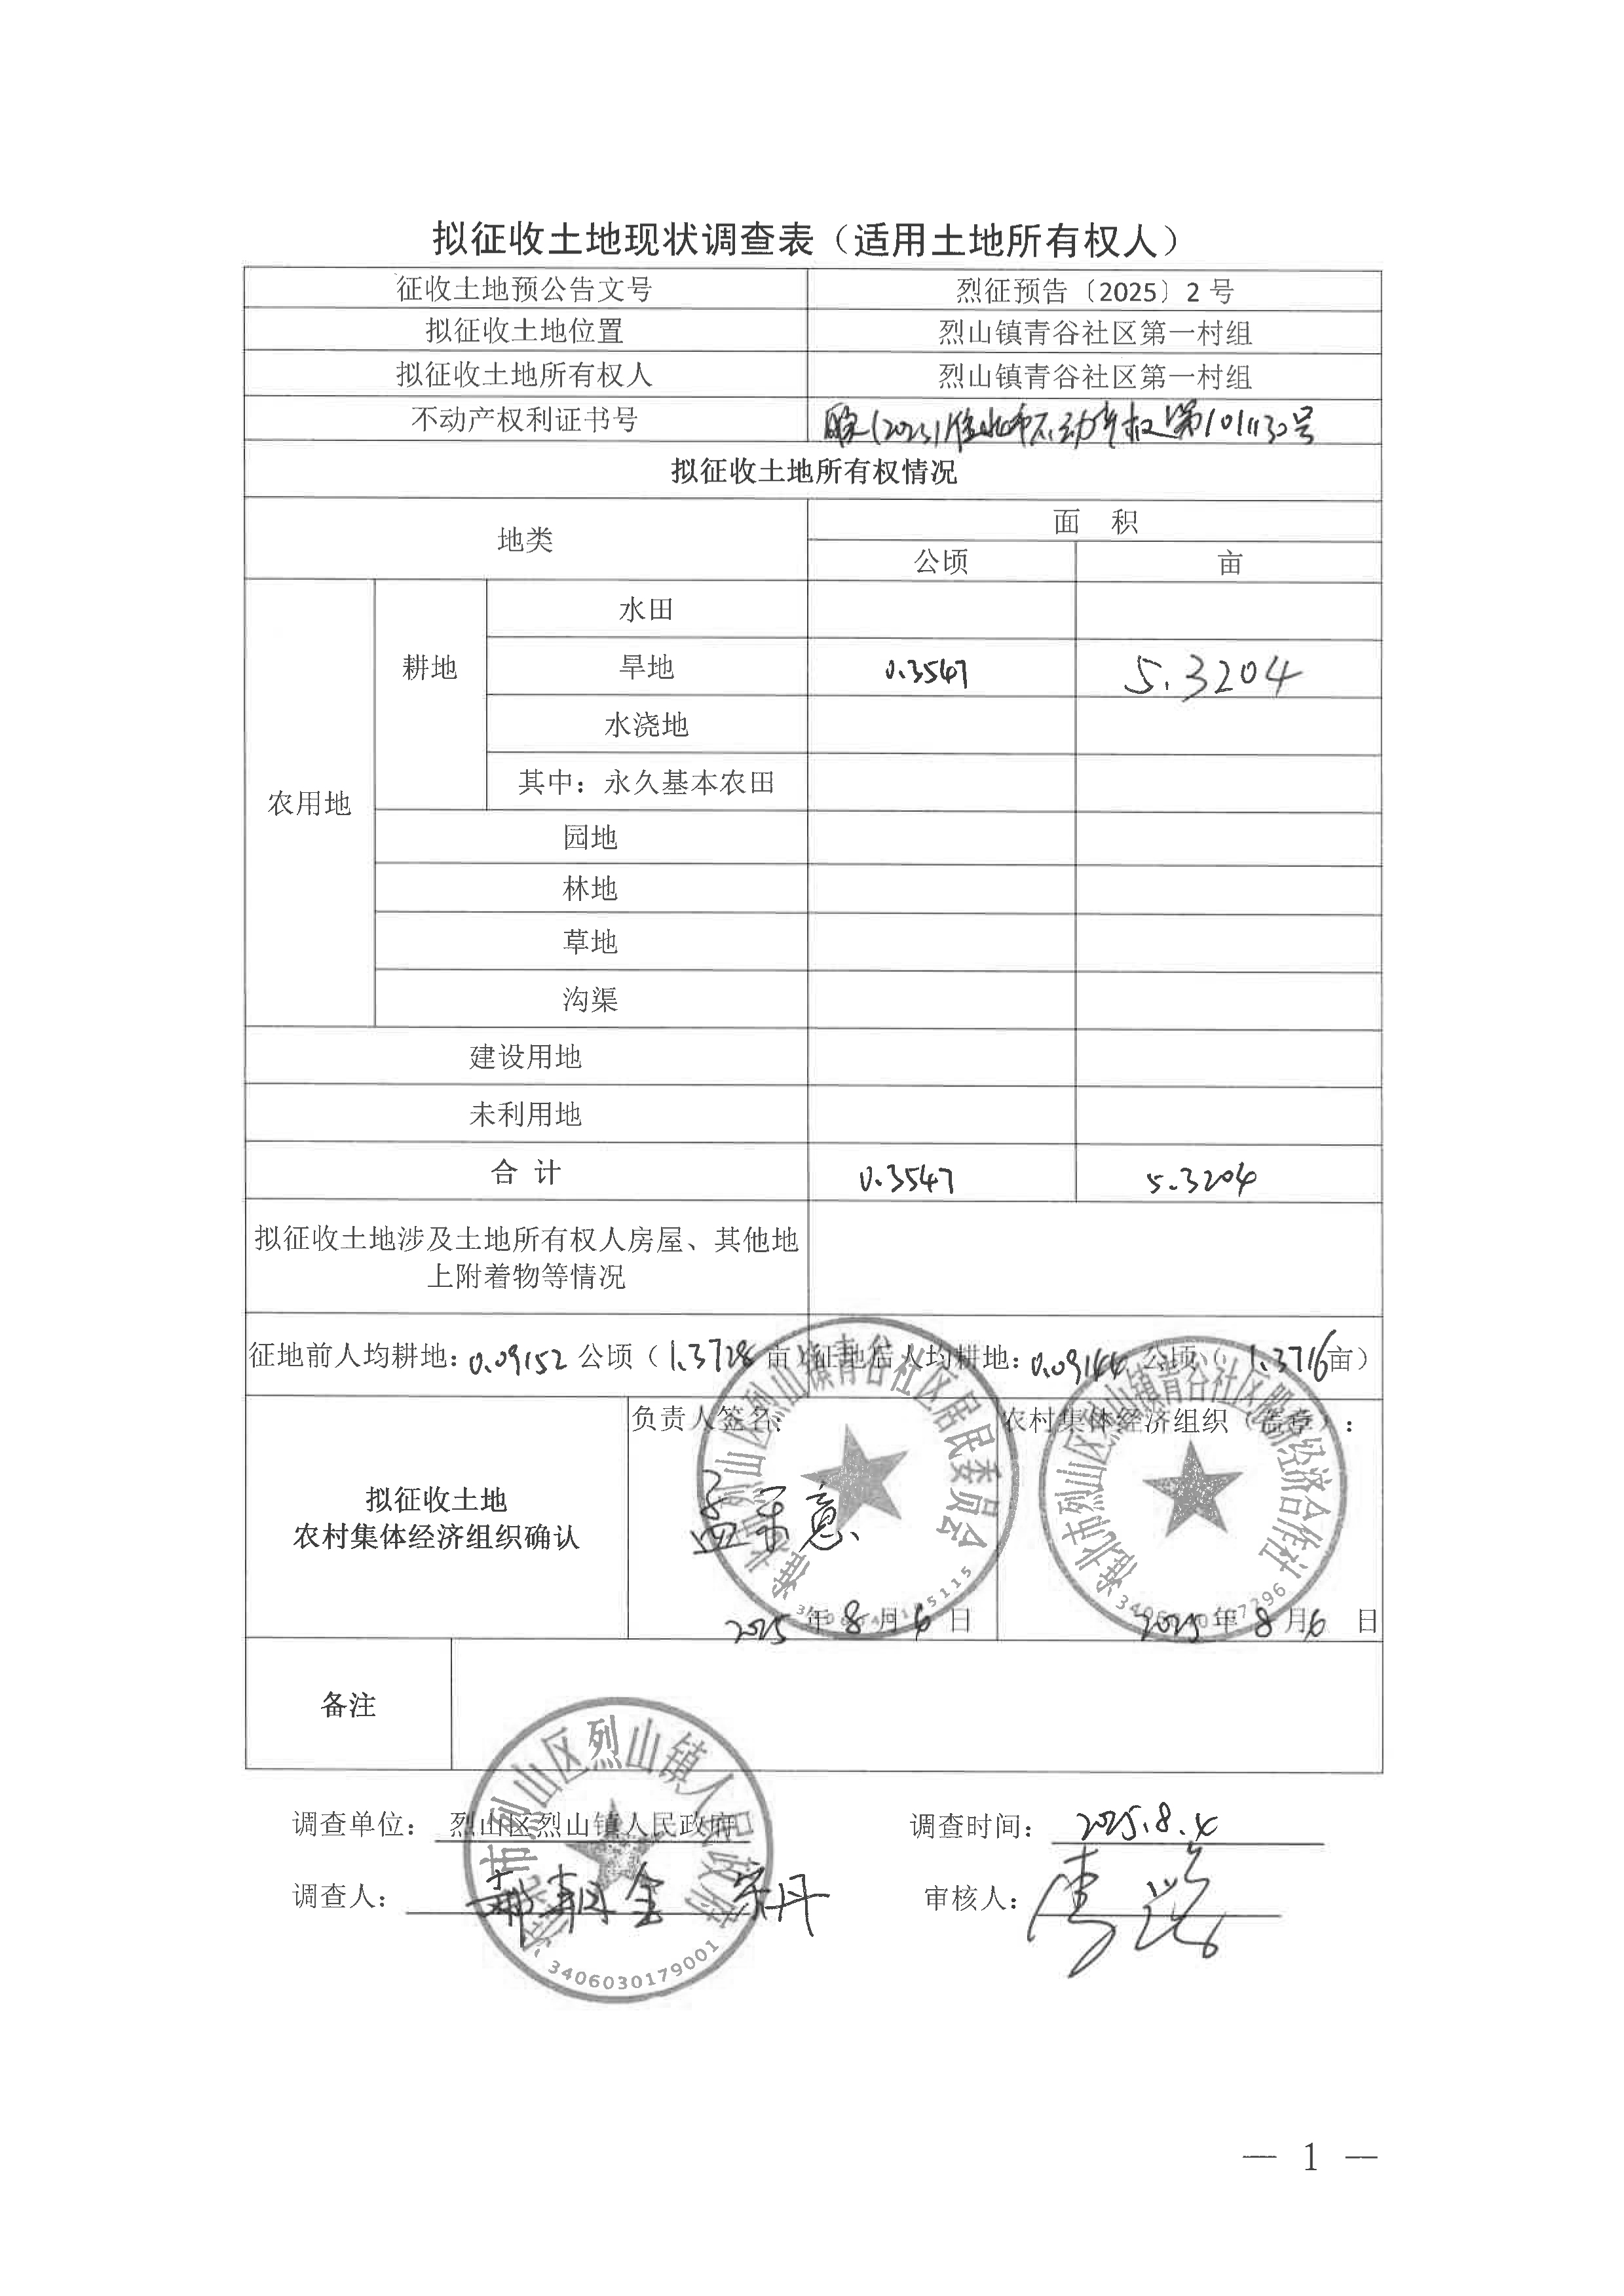 拟征收土地现状调查表（适用土地所有权人）
征收土地预公告文号 烈征预告〔2025〕2 号
拟征收土地位置 烈山镇青谷社区第一村组
拟征收土地所有权人 烈山镇青谷社区第一村组
不动产权利证书号 皖(2023)淮北市不动产权第1011130号
拟征收土地所有权情况
地类 面 积
公顷 亩
农用地
耕地
水田
旱地 0.3547 5.3204
水浇地
其中：永久基本农田
园地
林地
草地
沟渠
建设用地
未利用地
合 计 0.3547 5.3204
拟征收土地涉及土地所有权人房屋、其他地
上附着物等情况
征地前人均耕地：0.09152 公顷（1.3728 亩）征地后人均耕地：0.09144 公顷（1.3716亩）
拟征收土地
农村集体经济组织确认
负责人签名：
孟 意
2025 年 8 月 6 日
农村集体经济组织（盖章）：
2025 年 8 月 6 日
淮北市烈山区烈山镇青谷社区居民委员会
淮北市烈山区烈山镇青谷社区股份经济合作社
备注
调查单位：烈山区烈山镇人民政府 调查时间：2025.8.4
调查人： 审核人：
淮北市烈山区烈山镇人民政府
3406030179001
— 1 —